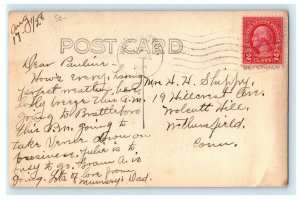 Aug
17 1928
50-
POST CARD
UNITED STATES POSTAGE
2 CENTS 2
Dear Pauline:
How's every, having
perfect weather, here
only breeze this a.m.
going to Brattleboro
this P.m. going to
take Verner down on
business. Julia is to
busy to go. Gram A. is
going. Lots of love from
Mumsey & Dad.
Mrs H. H. Shippy,
19 Hillcrest Ave.
Wolcott Hill,
Wethersfield,
Conn.